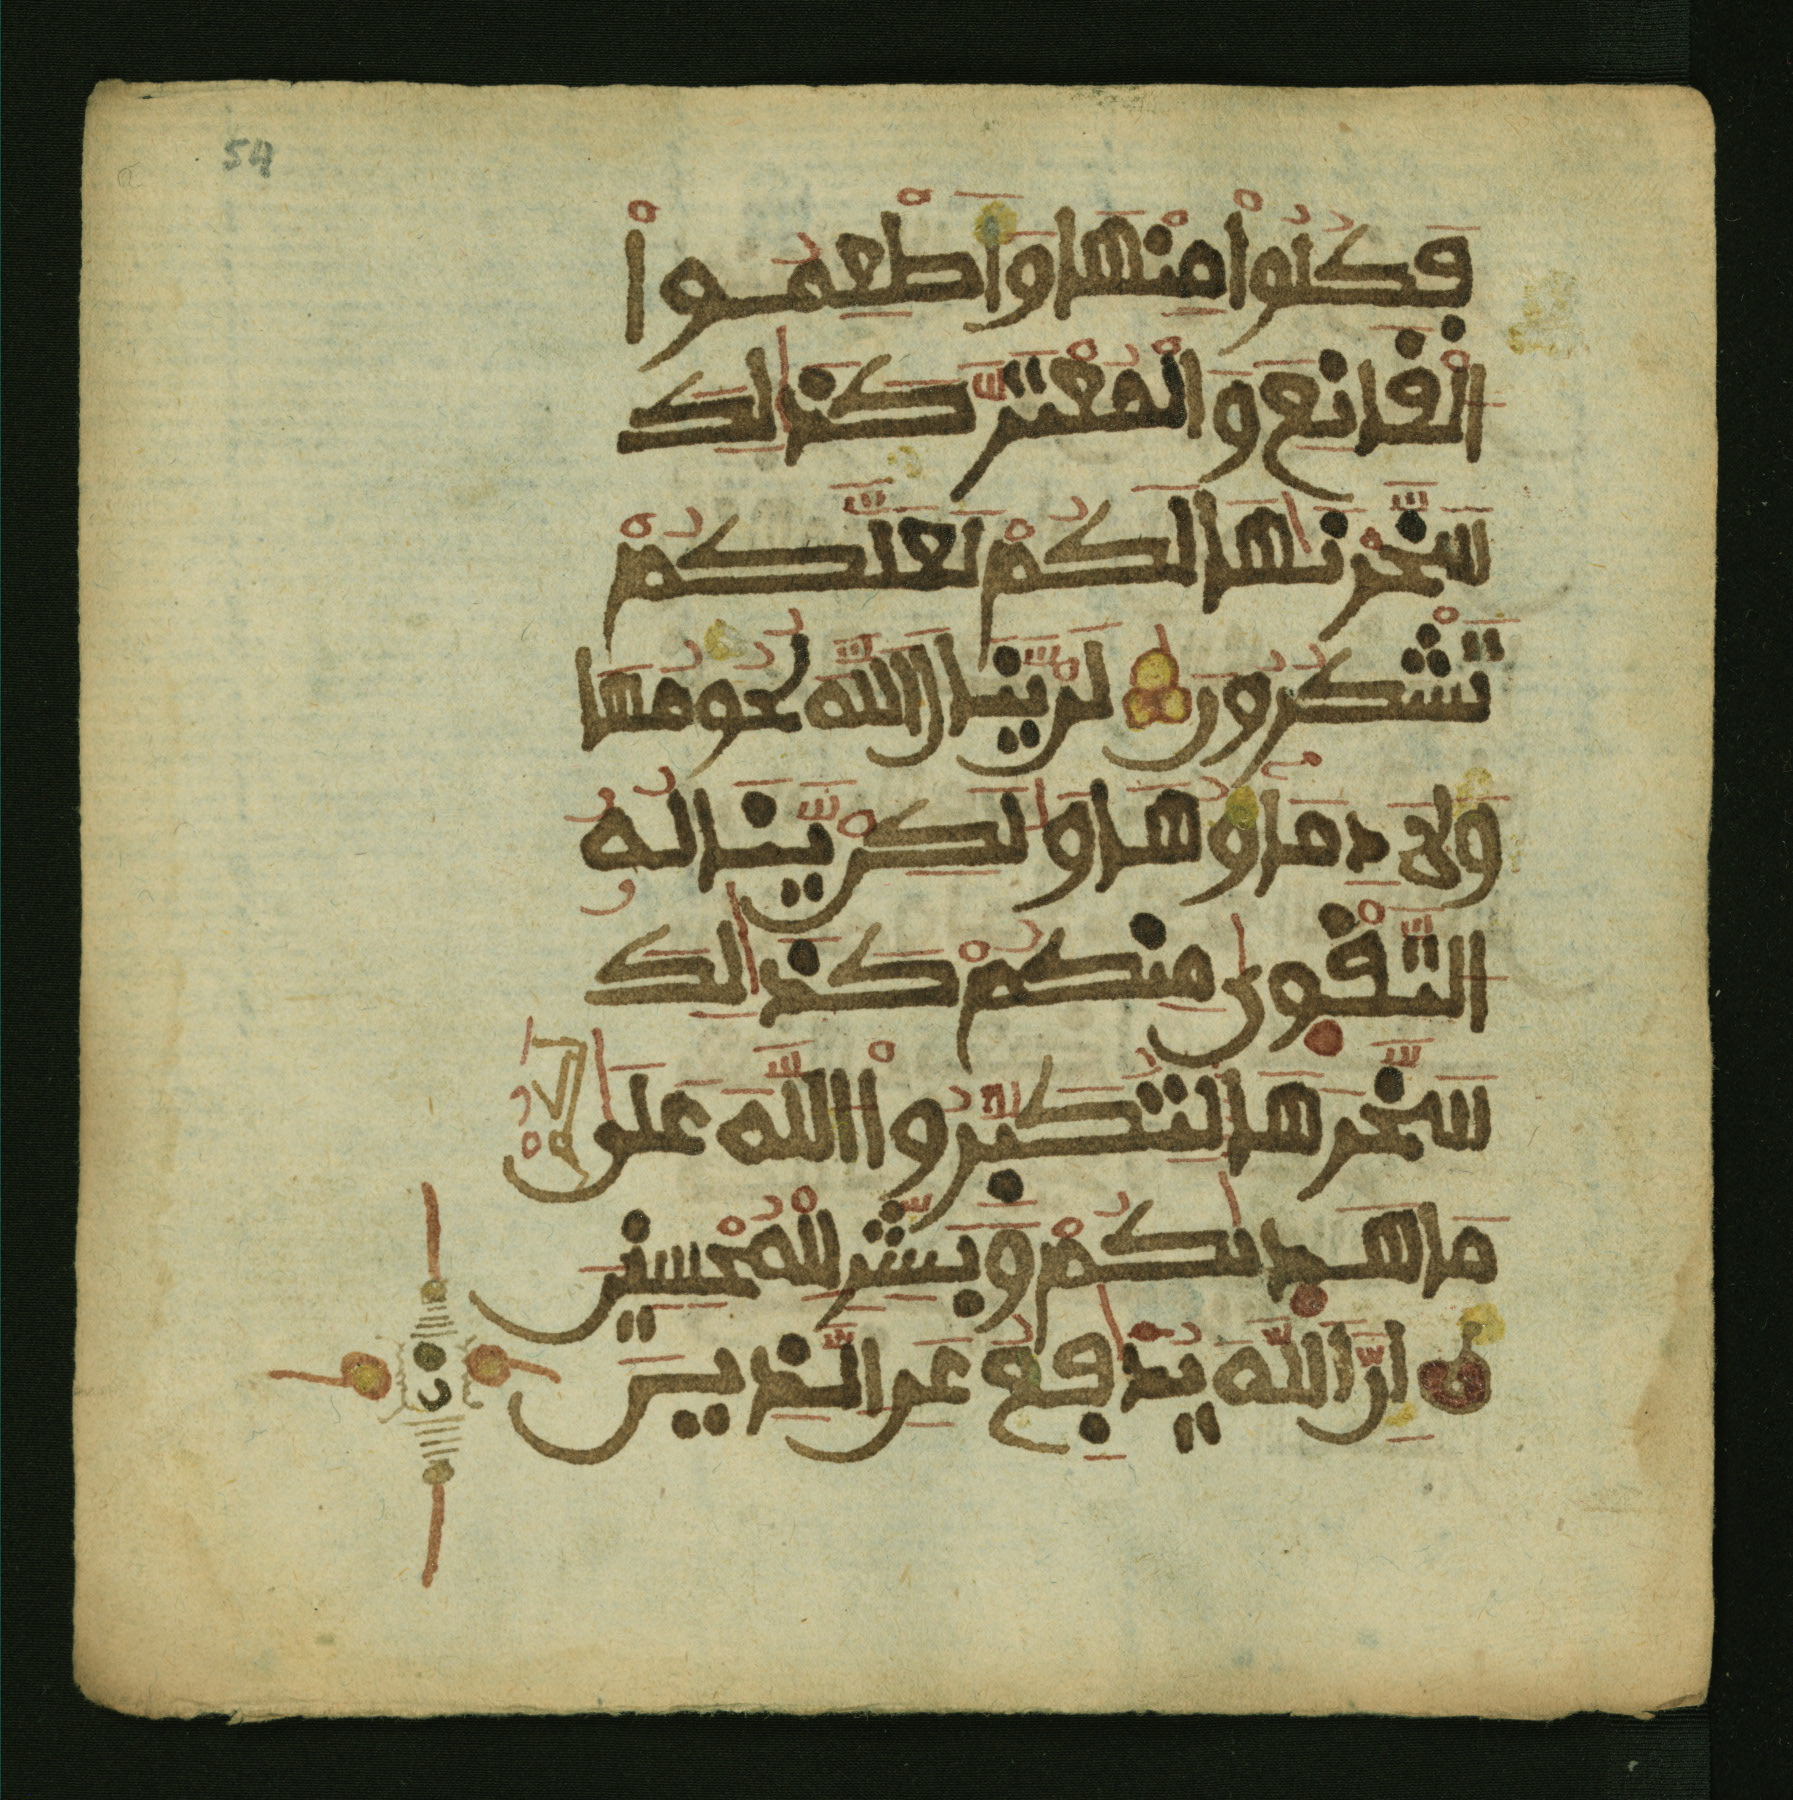 54
فَكُلُواْ مِنْهَا وَأَطْعِمُواْ
الْقَانِعَ وَالْمُعْتَرَّ كَذَٰلِكَ
سَخَّرْنَٰهَا لَكُمْ لَعَلَّكُمْ
تَشْكُرُونَ لَنْ يَّنَالَ اللَّهَ لُحُومُهَا
وَلَا دِمَآؤُهَا وَلَٰكِنْ يَّنَالُهُ
التَّقْوَىٰ مِنكُمْ كَذَٰلِكَ
سَخَّرَهَا لِتُكَبِّرُواْ اللَّهَ عَلَىٰ لَكُمْ
مَا هَدَىٰكُمْ وَبَشِّرِ الْمُحْسِنِينَ
إِنَّ اللَّهَ يُدَٰفِعُ عَنِ الَّذِينَ